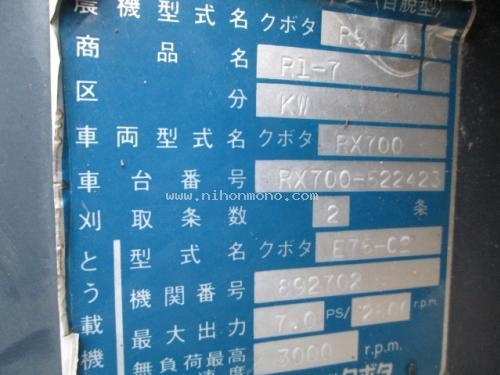 (自脱型)
農機型式名 クボタ
商品名 R1-7
区分 KW
車両型式名 クボタ RX700
車台番号 RX700-522423
刈取条数 2 条
とう載機
型式名 クボタ E75-C2
機関番号 892702
最大出力 7.0 PS/ r.p.m.
無負荷最高 3000 r.p.m.
クボタ
www.nihonmono.com